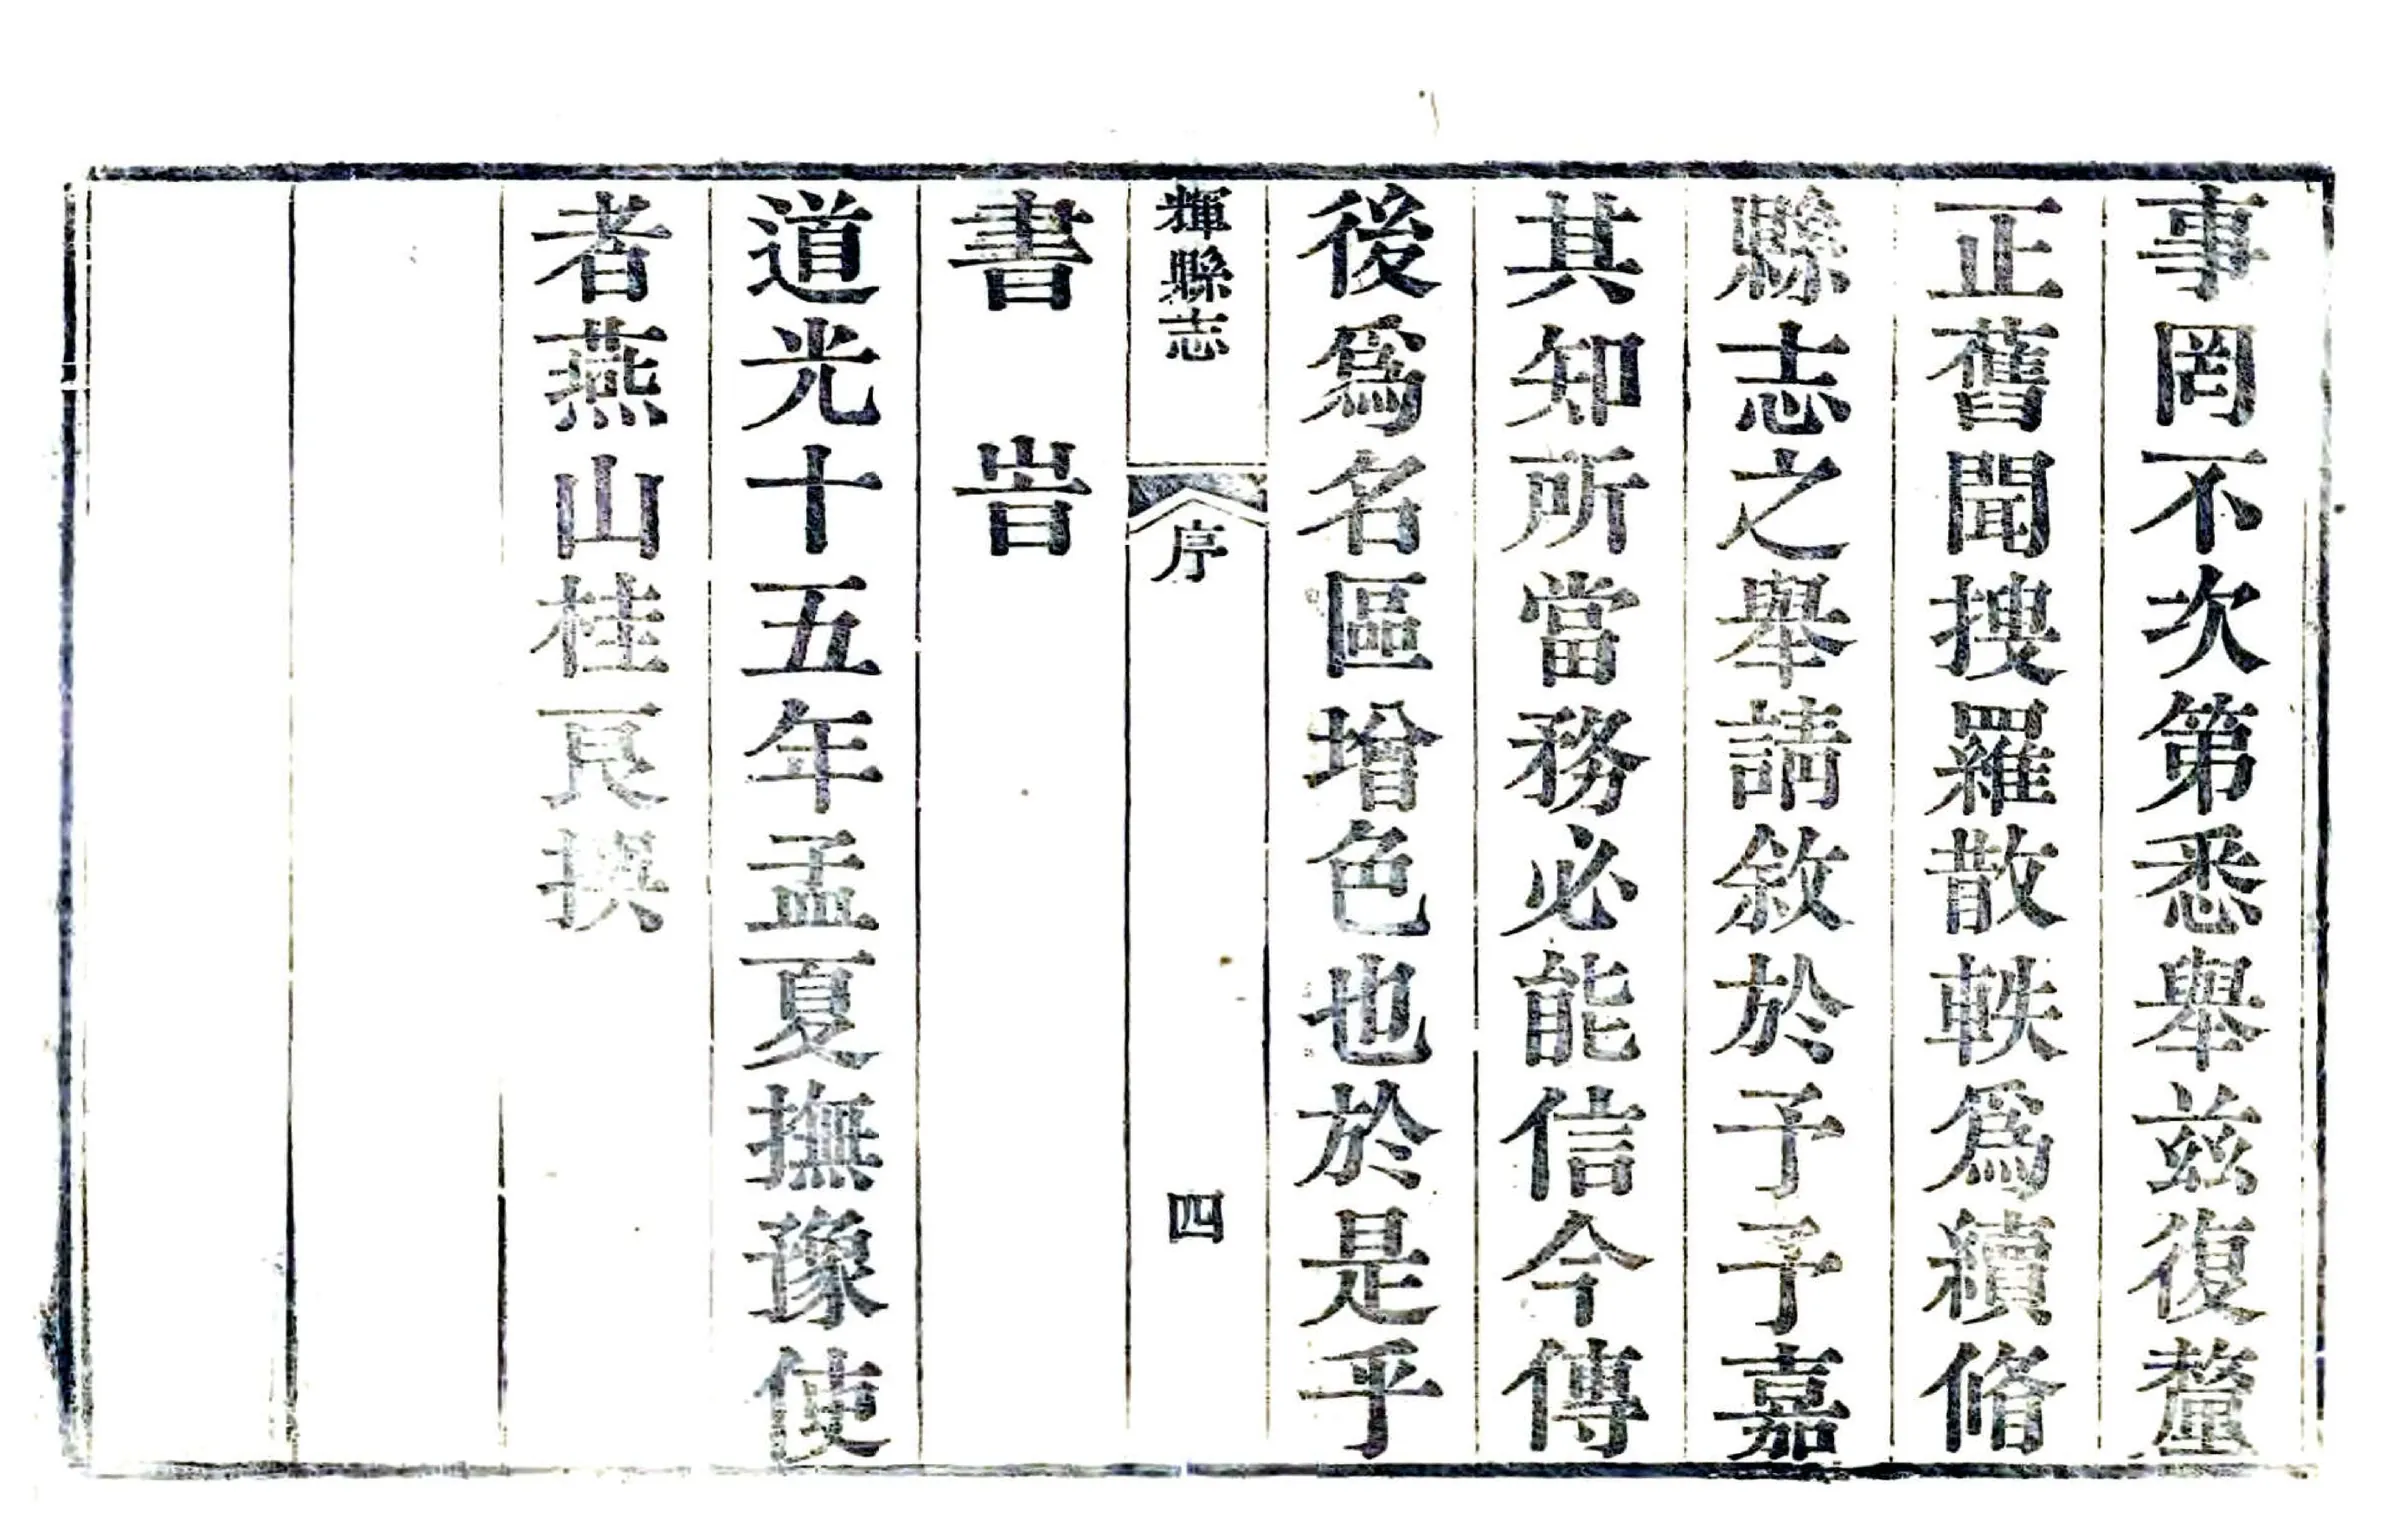 事罔不次第悉舉茲復釐
正舊聞搜羅散軼爲續脩
縣志之舉請敘於予予嘉
其知所當務必能信今傳
後爲名區增色也於是乎
書 旹
輝縣志 序 四
道光十五年孟夏撫豫使
者燕山桂良撰